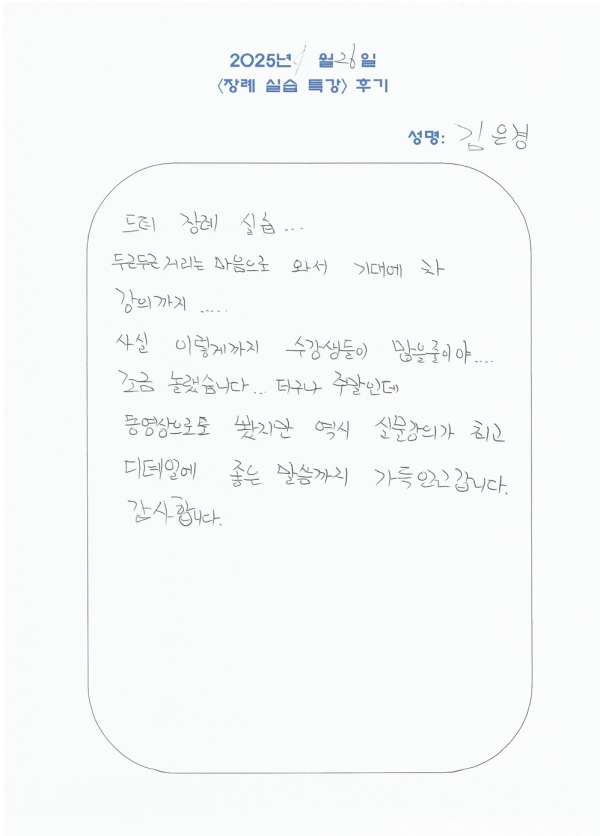 2025년 1월 26일
<장례 실습 특강> 후기
성명: 김은경
드디 장례 실습...
두근두근거리는 마음으로 와서 기대에 차
강의까지 .....
사실 이렇게까지 수강생들이 많을줄이야....
조금 놀랬습니다... 더구나 주말인데
동영상으로도 봤지만 역시 실물강의가 최고
디테일에 좋은 말씀까지 가득안고갑니다.
감사합니다.